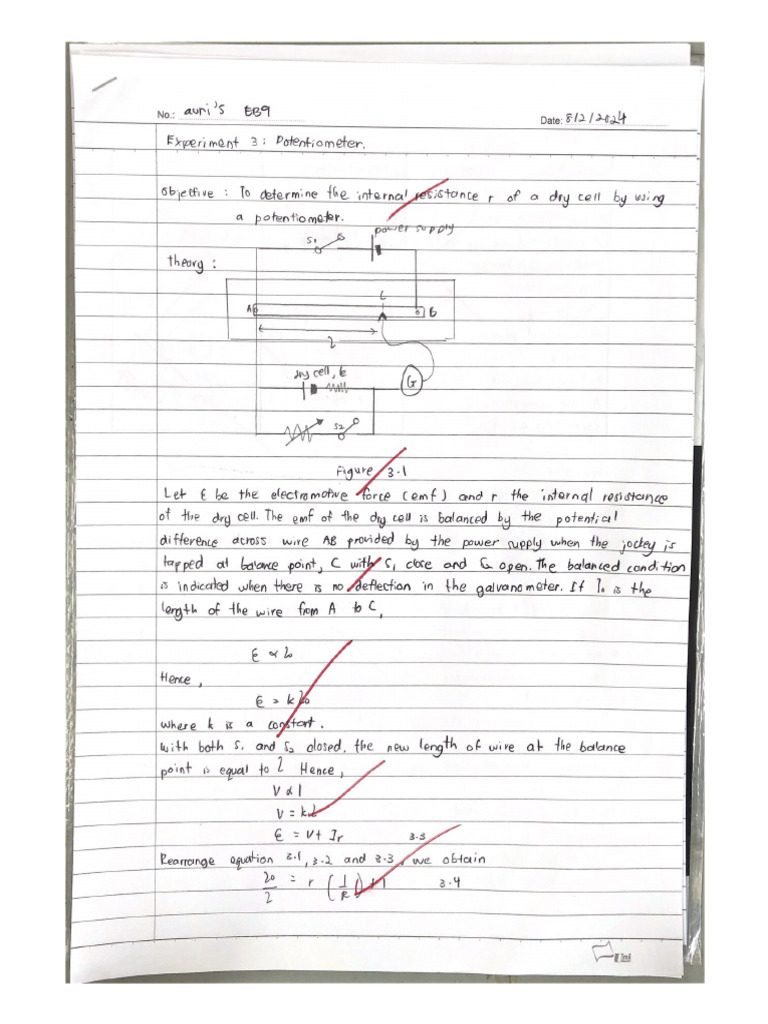 No.: auri's BB9
Date: 8/2/2024
Experiment 3: Potentiometer.
Objective : To determine the internal resistance r of a dry cell by using
a potentiometer.
power supply
S1
theory :
C
A B
l
dry cell, ε
G
S2
Figure 3.1
Let ε be the electromotive force (emf) and r the internal resistance
of the dry cell. The emf of the dry cell is balanced by the potential
difference across wire AB provided by the power supply when the jockey is
tapped at balance point, C with S1 close and S2 open. The balanced condition
is indicated when there is no deflection in the galvanometer. If l0 is the
length of the wire from A to C,
ε ∝ l0
Hence,
ε = kl0
where k is a constant.
With both S1 and S2 closed, the new length of wire at the balance
point is equal to l Hence,
V ∝ l
V = kl
ε = V + Ir 3.3
Rearrange equation 3.1, 3.2 and 3.3, we obtain
l0/l = r (1/R) + 1 3.4